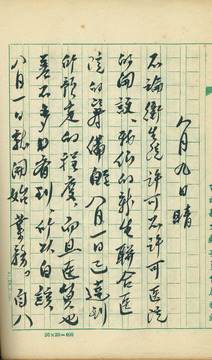 八月九日 晴
不論衛生院許可不許可医院
的開設、我仙的新生聯合医
院的準備能八月一日已達到
所預定的程度。而且医員也
差不多得看到、所以自該
八月一日就開始業務。自八
20×20=400